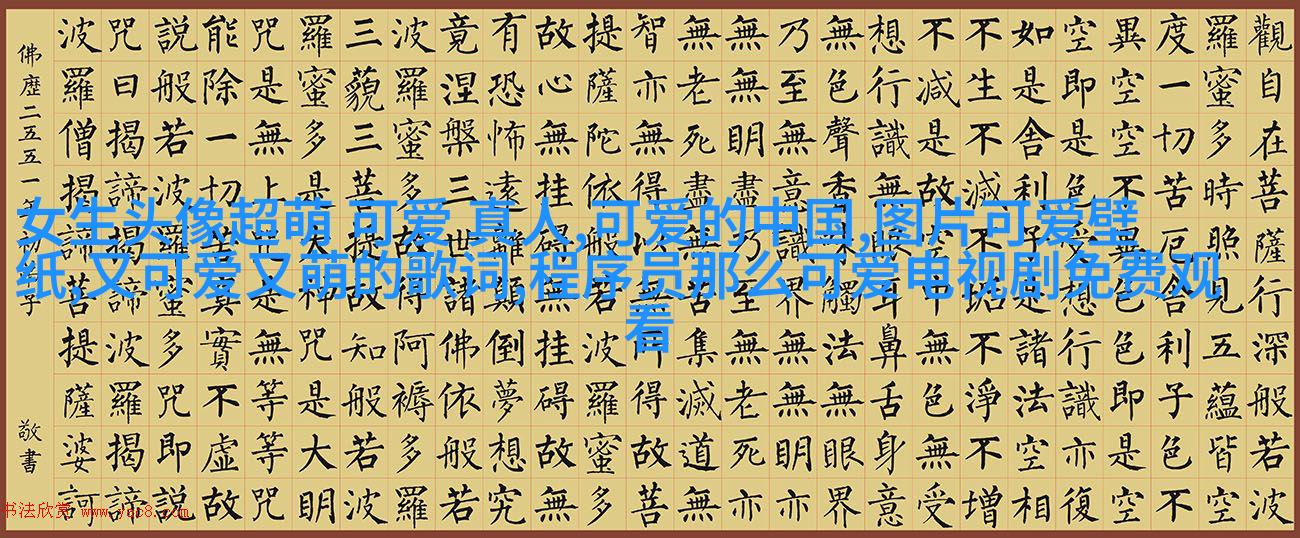 觀自在菩薩行深般若波
羅蜜多時照見五蘊皆空
度一切苦厄舍利子色不
異空空不異色色即是空
空即是色受想行識亦復
如是舍利子是諸法空相
不生不滅不垢不淨不增
不減是故空中無色無受
想行識無眼耳鼻舌身意
無色聲香味觸法無眼界
乃至無意識界無無明亦
無無明盡乃至無老死亦
無老死盡無苦集滅道無
智亦無得以無所得故菩
提薩陀依般若波羅蜜多
故心無挂礙無挂礙故無
有恐怖遠離顛倒夢想究
竟涅槃三世諸佛依般若
波羅蜜多故得阿褥多羅
三藐三菩提故知般若波
羅蜜多是大神咒是大明
咒是無上咒是無等等咒
能除一切苦真實不虛故
說般若波羅蜜多咒即說
咒曰揭諦揭諦波羅揭諦
波羅僧揭諦菩提薩婆訶
佛歷二五五一年初 子
敬書
女生头像超萌 可爱 真人,可爱的中国,图片可爱壁
纸,又可爱又萌的歌词,程序员那么可爱电视剧免费观
看
书法欣赏 www.yac8.com